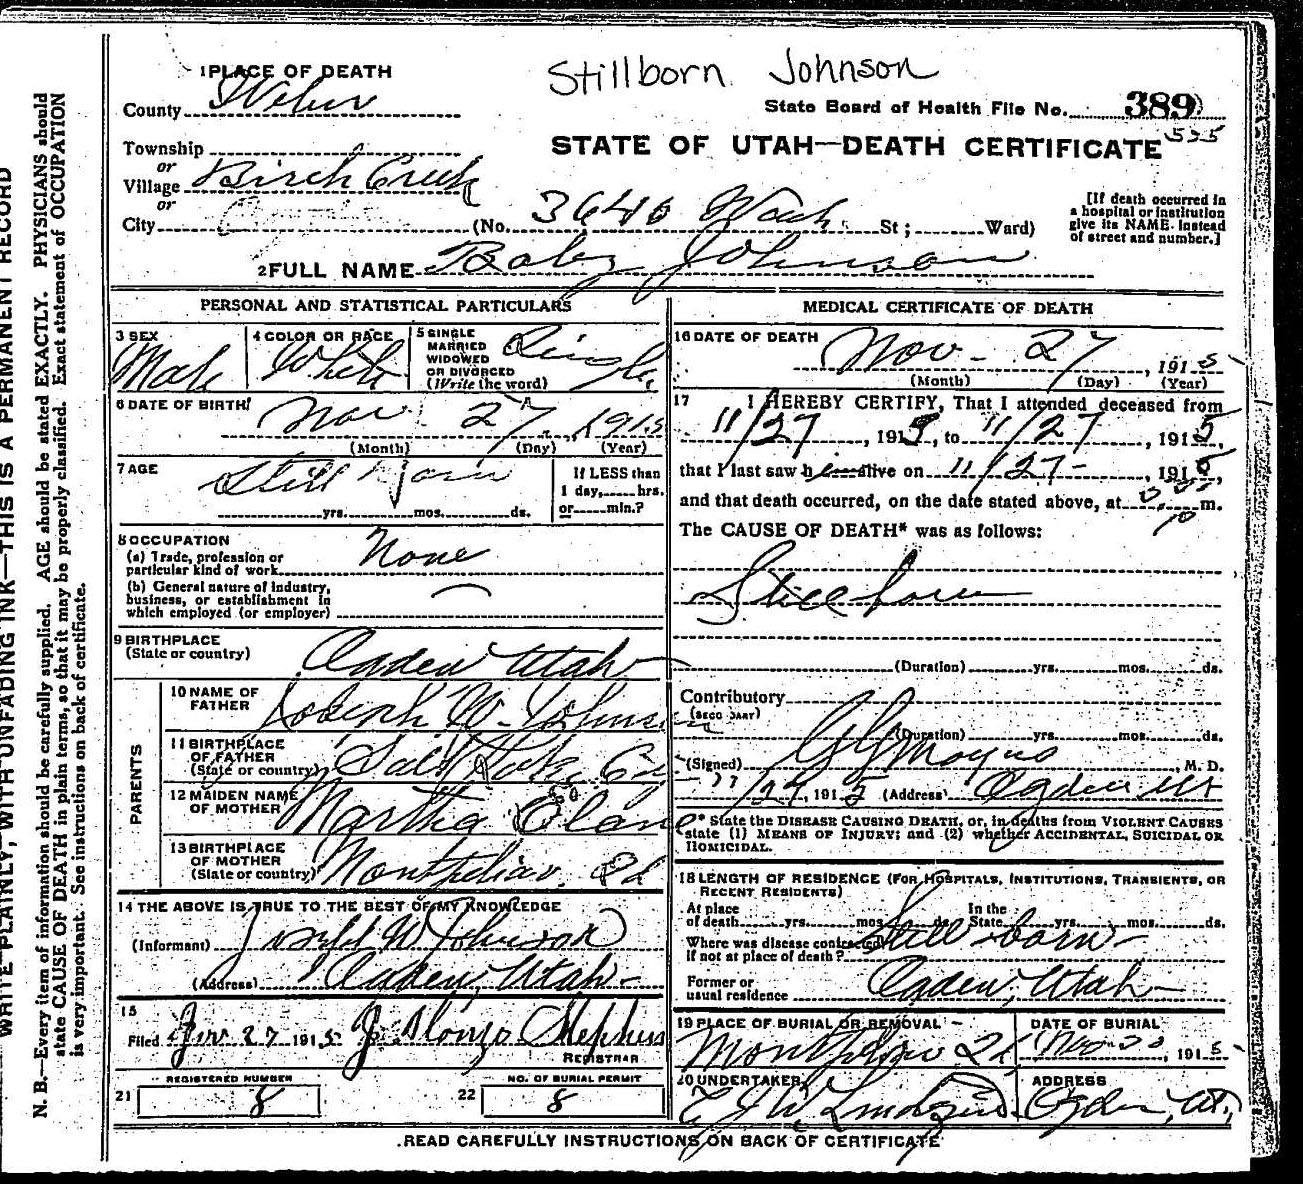 Stillborn Johnson
1 PLACE OF DEATH
County Weber
State Board of Health File No. 389
535
STATE OF UTAH—DEATH CERTIFICATE
Township
or
Village Birch Creek
or
City (No. 3646 Wash. St; Ward)
[If death occurred in a hospital or institution give its NAME instead of street and number.]
2 FULL NAME Baby Johnson
PERSONAL AND STATISTICAL PARTICULARS
3 SEX Male
4 COLOR OR RACE White
5 SINGLE MARRIED WIDOWED OR DIVORCED (Write the word) Single
6 DATE OF BIRTH Nov. 27, 1915
(Month) (Day) (Year)
7 AGE Still born
yrs. mos. ds.
If LESS than 1 day, hrs. or min.?
8 OCCUPATION
(a) Trade, profession or particular kind of work None
(b) General nature of industry, business, or establishment in which employed (or employer) —
9 BIRTHPLACE (State or country) Ogden Utah
PARENTS
10 NAME OF FATHER Joseph W. Johnson
11 BIRTHPLACE OF FATHER (State or country) Salt Lake City
12 MAIDEN NAME OF MOTHER Martha
13 BIRTHPLACE OF MOTHER (State or country) Montpelier Id
14 THE ABOVE IS TRUE TO THE BEST OF MY KNOWLEDGE
(Informant) Joseph W Johnson
(Address) Ogden, Utah
15
Filed 27 1915 J. Alonzo Stephens
REGISTRAR
REGISTERED NUMBER
21 8
NO. OF BURIAL PERMIT
22 8
MEDICAL CERTIFICATE OF DEATH
16 DATE OF DEATH Nov - 27, 1915
(Month) (Day) (Year)
17 I HEREBY CERTIFY, That I attended deceased from
11/27, 1915, to 11/27, 1915,
that I last saw h alive on 11/27-, 1915,
and that death occurred, on the date stated above, at m.
The CAUSE OF DEATH* was as follows:
Stillborn
(Duration) yrs. mos. ds.
Contributory
(SECONDARY)
(Duration) yrs. mos. ds.
(Signed) , M. D.
11/27, 1915 (Address) Ogden Ut
* State the DISEASE CAUSING DEATH, or, in deaths from VIOLENT CAUSES
state (1) MEANS OF INJURY; and (2) whether ACCIDENTAL, SUICIDAL OR
HOMICIDAL.
18 LENGTH OF RESIDENCE (FOR HOSPITALS, INSTITUTIONS, TRANSIENTS, OR RECENT RESIDENTS)
At place of death yrs. mos. ds. In the State yrs. mos. ds.
Where was disease contracted, if not at place of death? Still-born-
Former or usual residence Ogden, Utah
19 PLACE OF BURIAL OR REMOVAL Montpelier
DATE OF BURIAL , 1915
20 UNDERTAKER
ADDRESS Ogden, Ut,
READ CAREFULLY INSTRUCTIONS ON BACK OF CERTIFICATE
WRITE PLAINLY, WITH UNFADING INK—THIS IS A PERMANENT RECORD
N. B.—Every item of information should be carefully supplied. AGE should be stated EXACTLY. PHYSICIANS should
state CAUSE OF DEATH in plain terms, so that it may be properly classified. Exact statement of OCCUPATION
is very important. See instructions on back of certificate.